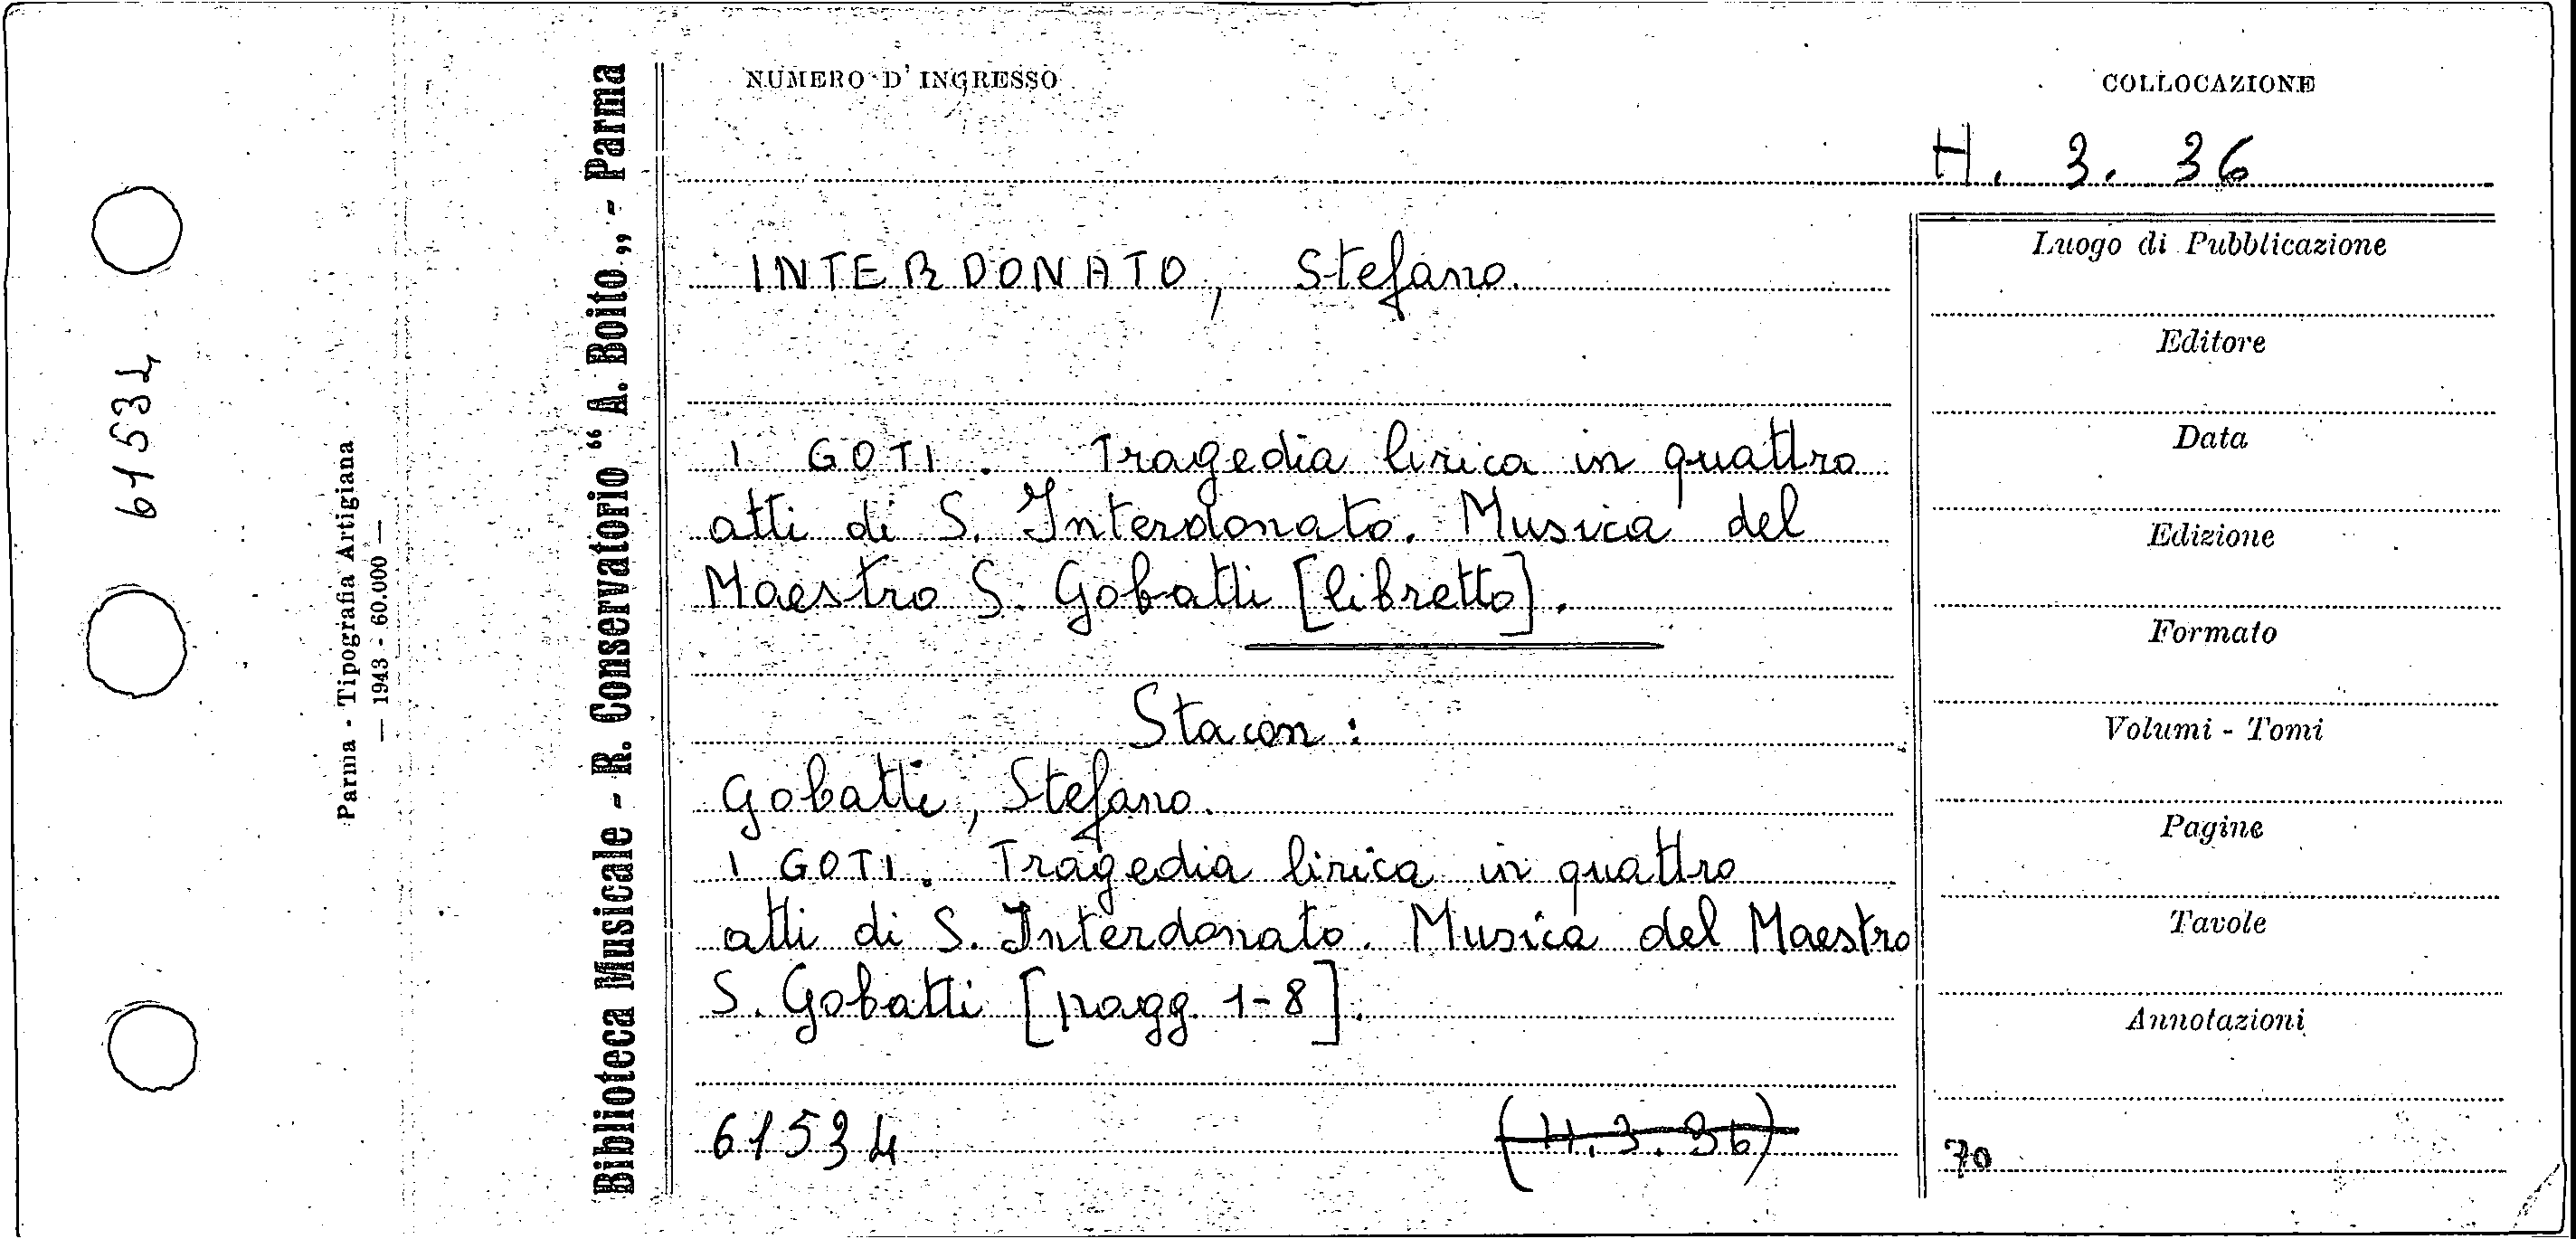 61534
Parma - Tipografia Artigiana
— 1943 - 60.000 —
Biblioteca Musicale - R. Conservatorio “ A. Boito „ - Parma
NUMERO D' INGRESSO
COLLOCAZIONE
H. 3. 36
INTERDONATO, Stefano.
I GOTI. Tragedia lirica in quattro
atti di S. Interdonato. Musica del
Maestro S. Gobatti [libretto].
Sta con:
Gobatti, Stefano.
I GOTI. Tragedia lirica in quattro
atti di S. Interdonato. Musica del Maestro
S. Gobatti [pagg. 1-8].
61534
(H.3.36)
Luogo di Pubblicazione
Editore
Data
Edizione
Formato
Volumi - Tomi
Pagine
Tavole
Annotazioni
70